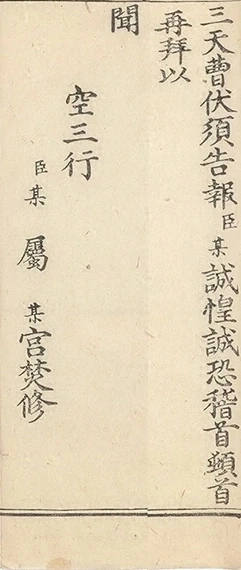 三天曹伏須告報臣某誠惶誠恐稽首顙首
再拜以
聞
空三行
臣某屬某宮焚修